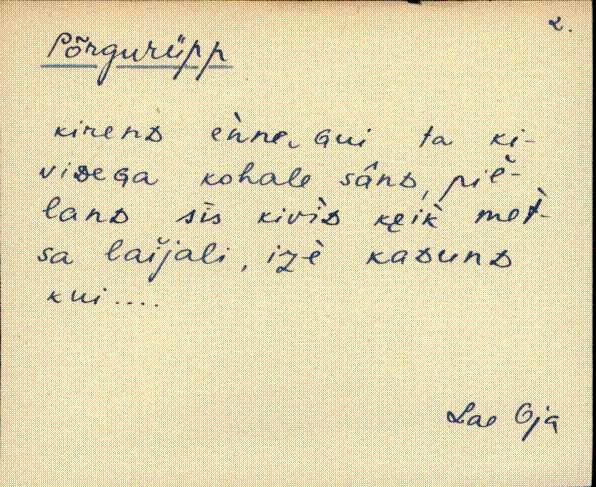 2.
Põrgurüpp
kirenD ènne, Gui ta ki-
viDeGa kohale sânD, piĕ-
lanD sìs kivìD kęik mèt-
sa laiјali, izè kaDunD
kui....
Lae Oja